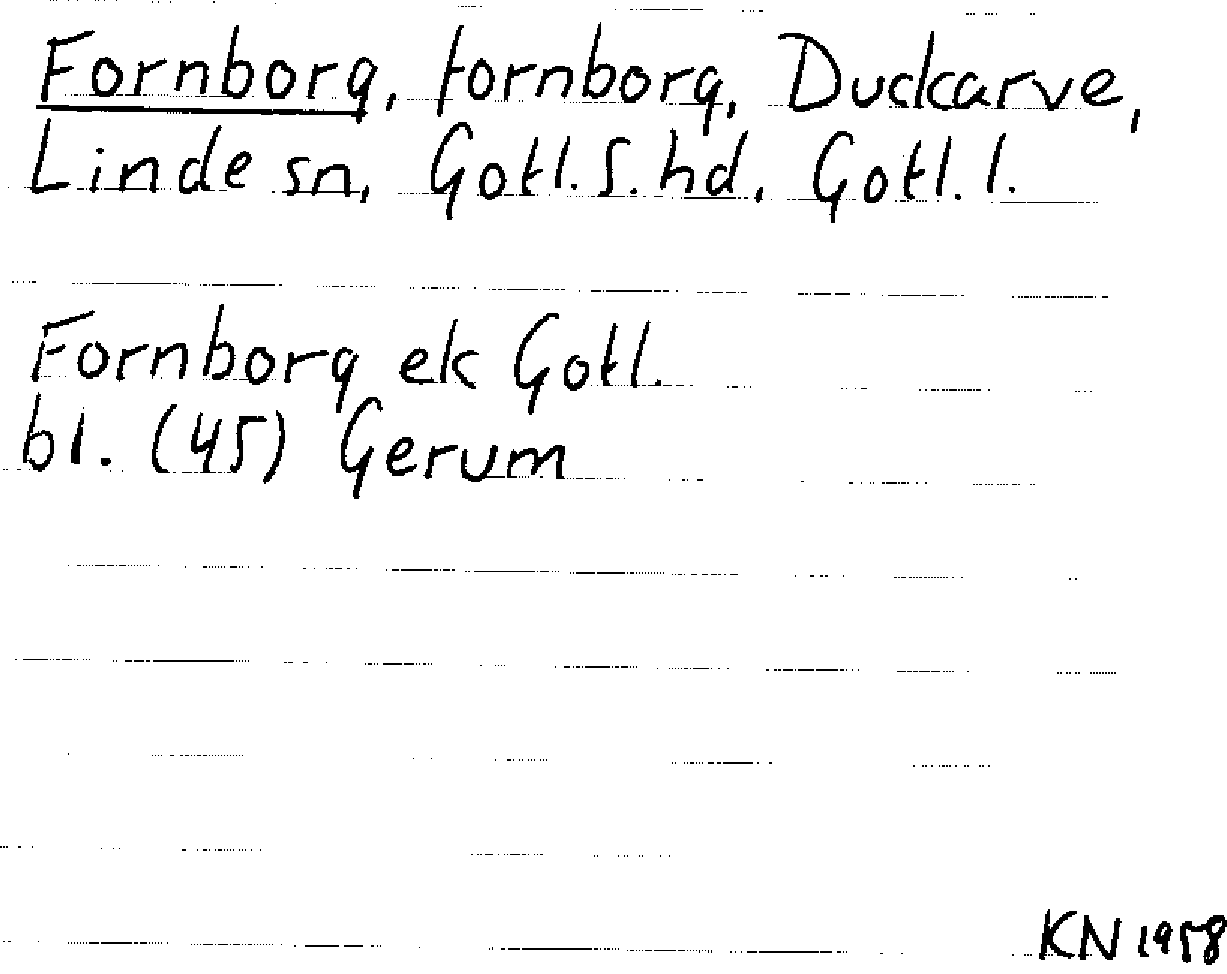 Fornborg, fornborg, Duckarve,
Linde sn, Gotl. S. hd, Gotl. l.
Fornborg ek Gotl.
bl. (45) Gerum
KN 1958